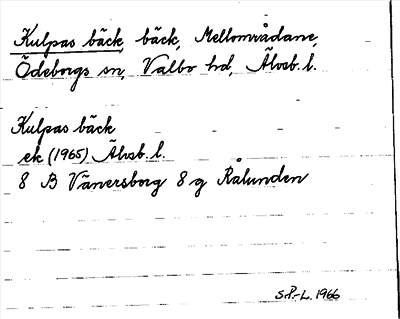 Kulpas bäck, bäck, Mellområdane,
Ödeborgs sn, Valbo hd, Älvsb. l.
Kulpas bäck
ek (1965) Älvsb. l.
8 B Vänersborg 8 g Rålunden
S.P.-L. 1966